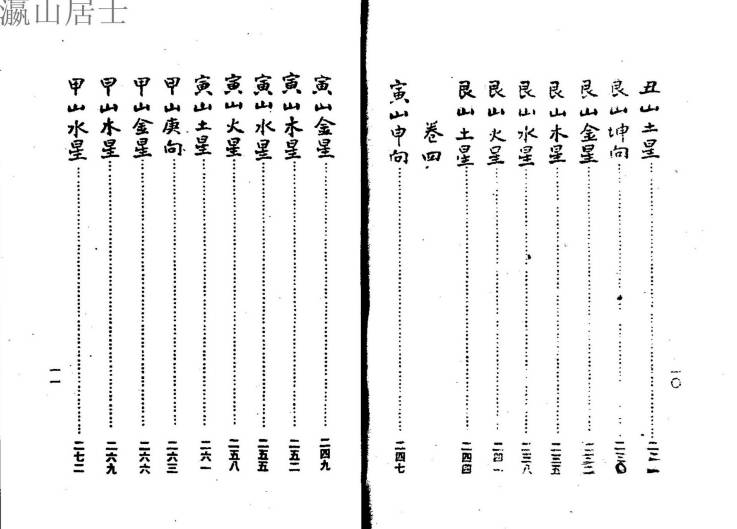 瀛山居士
丑山土星………二二一
艮山坤向………二三〇
艮山金星………二三二
艮山木星………二三五
艮山水星………二三八
艮山火星………二四一
艮山土星………二四四
卷四
寅山申向………二四七
一〇
寅山金星………二四九
寅山木星………二五二
寅山水星………二五五
寅山火星………二五八
寅山土星………二六一
甲山庚向………二六三
甲山金星………二六六
甲山木星………二六九
甲山水星………二七二
一一